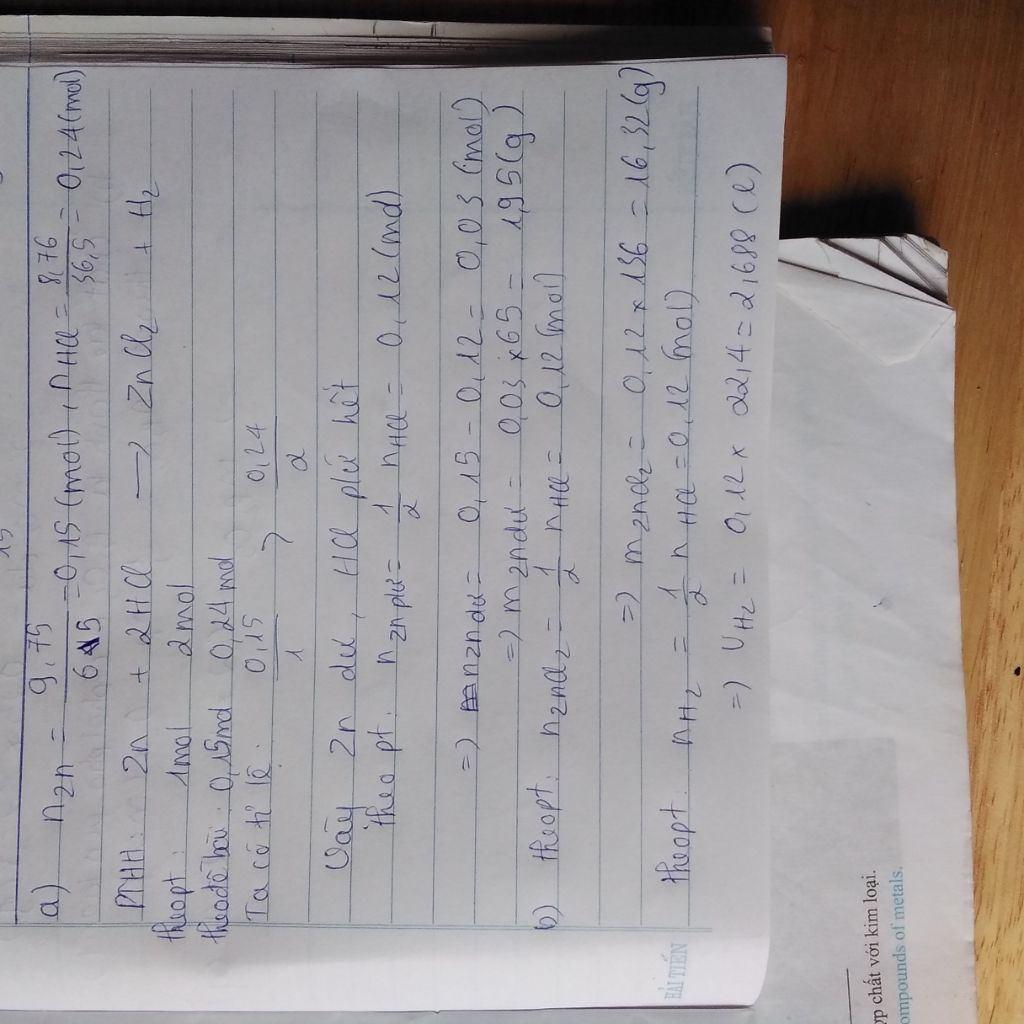 15
a) nZn = 9,75/65 = 0,15 (mol), nHCl = 8,76/36,5 = 0,24 (mol)
PTHH: Zn + 2HCl → ZnCl2 + H2
theo pt: 1mol 2mol
theo đề bài: 0,15mol 0,24mol
Ta có tỉ lệ: 0,15/1 > 0,24/2
Vậy Zn dư, HCl phứ hết
theo pt: nZn phứ = 1/2 nHCl = 0,12 (mol)
=> nZn dư = 0,15 - 0,12 = 0,03 (mol)
=> mZn dư = 0,03 x 65 = 1,95 (g)
b) theo pt: nZnCl2 = 1/2 nHCl = 0,12 (mol)
=> mZnCl2 = 0,12 x 136 = 16,32 (g)
theo pt: nH2 = 1/2 nHCl = 0,12 (mol)
=> VH2 = 0,12 x 22,4 = 2,688 (l)
HẢI TIẾN
ợp chất với kim loại.
ompounds of metals.